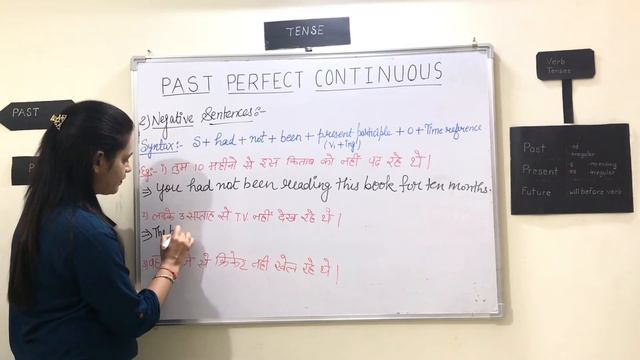 TENSE
PAST
PAST PERFECT CONTINUOUS
2) Negative Sentences:-
Syntax:- S + had + not + been + present participle + O + Time reference
(V₁ + ing)
Eg:- 1) तुम 10 महीनो से इस किताब को नहीं पढ़ रहे थे।
⇒ you had not been reading this book for ten months.
2) लड़के 3 सप्ताह से T.V. नहीं देख रहे थे।
⇒ The
3) से क्रिकेट नहीं खेल रहे थे।
Verb
Tenses
Past -ed
-irregular
Present -s
-es -irregular
Future will before verb